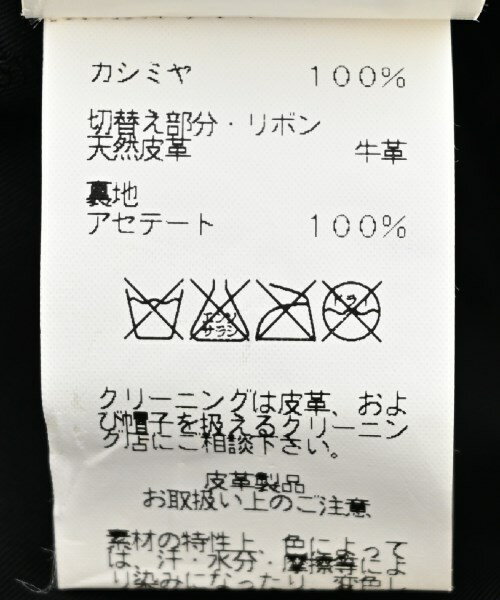 カシミヤ 100%
切替え部分・リボン
天然皮革 牛革
裏地
アセテート 100%
エンソ
サラシ
ドライ
クリーニングは皮革、およ
び帽子を扱えるクリーニン
グ店にご相談下さい。
皮革製品
お取扱い上のご注意
素材の特性上、色によって
は、汗・水分・摩擦等によ
り染みになったり、変色し